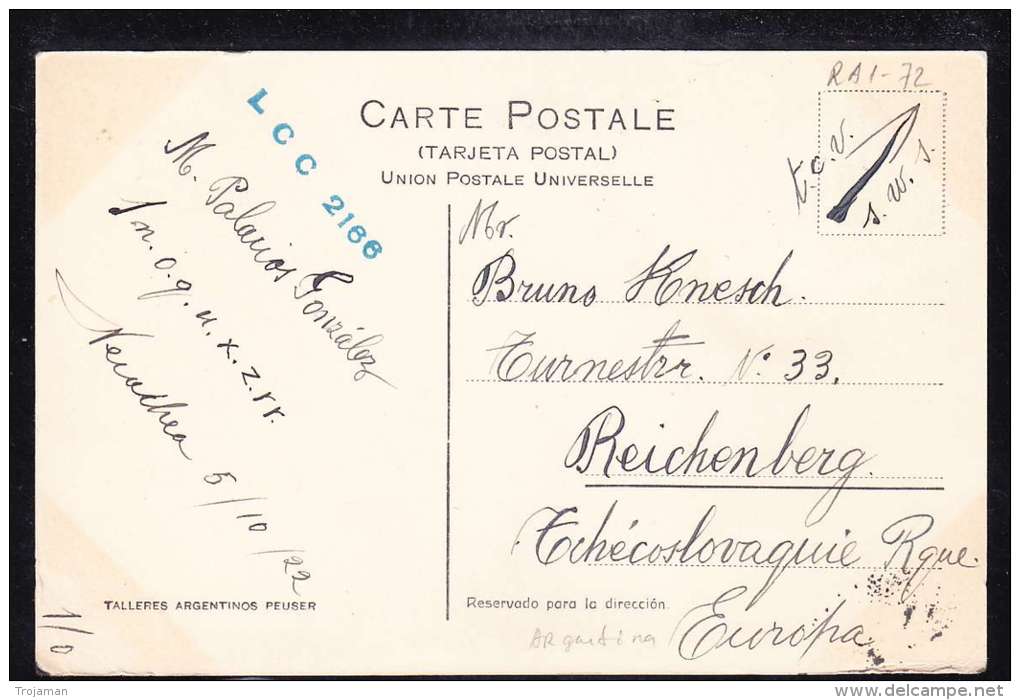 RA1-72
CARTE POSTALE
(TARJETA POSTAL)
UNION POSTALE UNIVERSELLE
t.c.v.
s. w. s.
LCC 2166
M. Palacios González
1 n. o. q. u. x. z. rr.
5/10/22
1/0
Mr.
Bruno Knesch.
Turnestrr. N° 33.
Reichenberg.
Tchécoslovaquie Rque.
Europa
TALLERES ARGENTINOS PEUSER
Reservado para la dirección.
ARgentina
Trojaman
delcampe.net